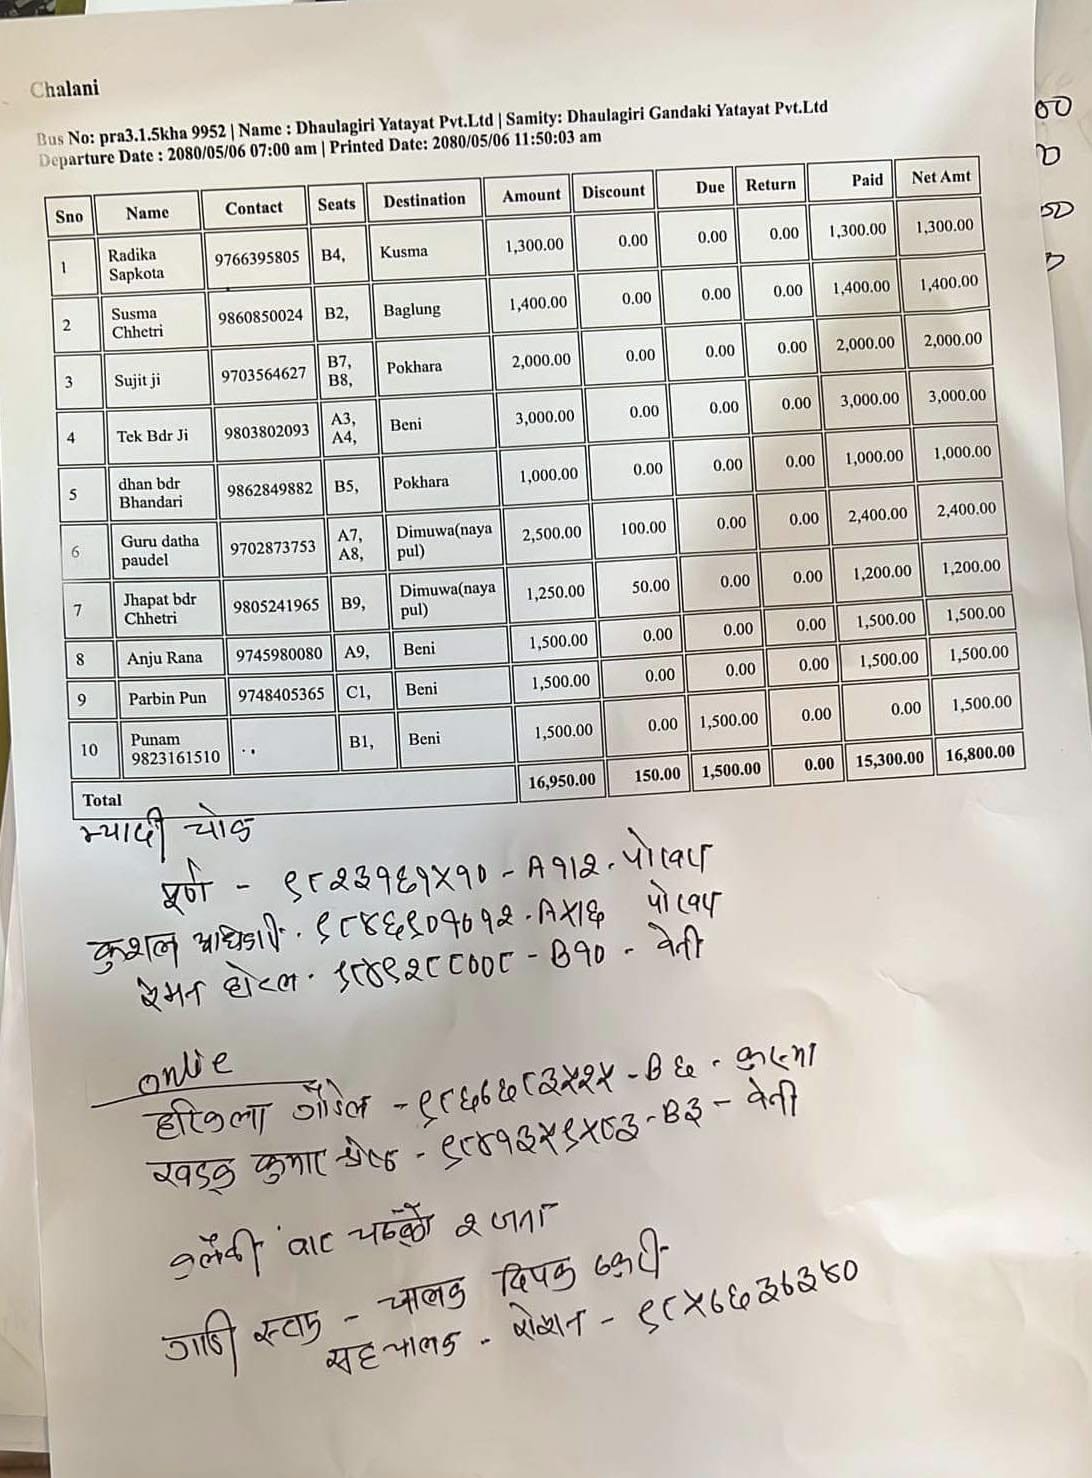 Chalani
Bus No: pra3.1.5kha 9952 | Name : Dhaulagiri Yatayat Pvt.Ltd | Samity: Dhaulagiri Gandaki Yatayat Pvt.Ltd
Departure Date : 2080/05/06 07:00 am | Printed Date: 2080/05/06 11:50:03 am
Sno Name Contact Seats Destination Amount Discount Due Return Paid Net Amt
1 Radika Sapkota 9766395805 B4, Kusma 1,300.00 0.00 0.00 0.00 1,300.00 1,300.00
2 Susma Chhetri 9860850024 B2, Baglung 1,400.00 0.00 0.00 0.00 1,400.00 1,400.00
3 Sujit ji 9703564627 B7, B8, Pokhara 2,000.00 0.00 0.00 0.00 2,000.00 2,000.00
4 Tek Bdr Ji 9803802093 A3, A4, Beni 3,000.00 0.00 0.00 0.00 3,000.00 3,000.00
5 dhan bdr Bhandari 9862849882 B5, Pokhara 1,000.00 0.00 0.00 0.00 1,000.00 1,000.00
6 Guru datha paudel 9702873753 A7, A8, Dimuwa(naya pul) 2,500.00 100.00 0.00 0.00 2,400.00 2,400.00
7 Jhapat bdr Chhetri 9805241965 B9, Dimuwa(naya pul) 1,250.00 50.00 0.00 0.00 1,200.00 1,200.00
8 Anju Rana 9745980080 A9, Beni 1,500.00 0.00 0.00 0.00 1,500.00 1,500.00
9 Parbin Pun 9748405365 C1, Beni 1,500.00 0.00 0.00 0.00 1,500.00 1,500.00
10 Punam 9823161510 .. B1, Beni 1,500.00 0.00 1,500.00 0.00 0.00 1,500.00
Total 16,950.00 150.00 1,500.00 0.00 15,300.00 16,800.00
म्यादी चोक
पूर्ण - ९८२३१६१४१० - A १।२ - पोखरा
कुशल अधिकारी - A ५।६ पोखरा
होटल - ९८४९२८८००८ - B१० - बेनी
onlie
हरिकला पौडेल - ९८६७६८३५२५ - B ६ - कुस्मा
खड्क कुमार श्रेष्ठ - - B३ - बेनी
बाट चढ्को २ जना
गाडी स्टाफ - चालक दिपक
सहचालक - रोशन - ९८४७६३७३४०